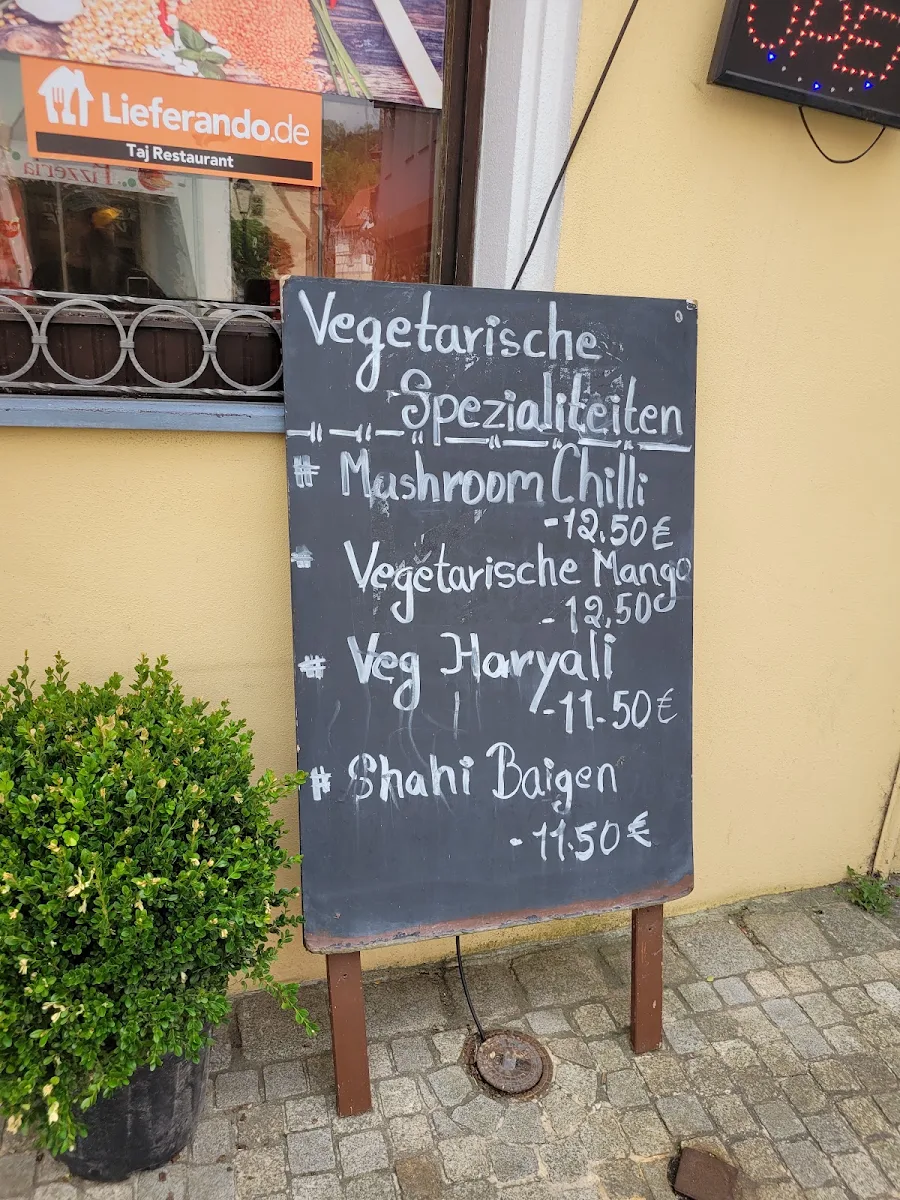 Lieferando.de
Taj Restaurant
Pizzeria
OPE
Vegetarische
Spezialiteiten
# Mushroom Chilli
-12.50€
# Vegetarische Mango
- 12,50
# Veg Haryali
-11.50€
# Shahi Baigen
-11.50€